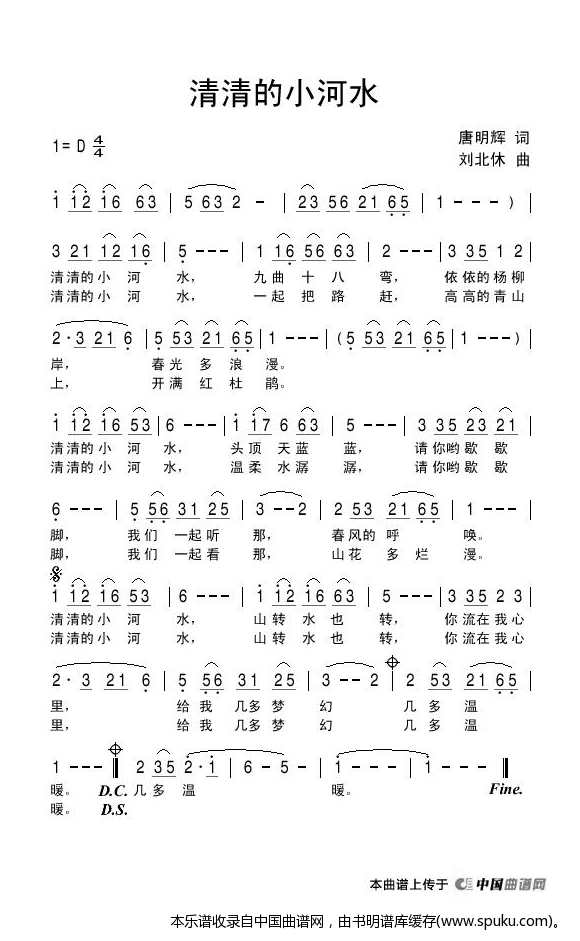 清清的小河水
1=D 4/4
唐明辉 词
刘北休 曲
1 12 16 63 | 5 63 2 - | 23 56 21 65 | 1 - - - ) |
3 21 12 16 | 5 - - - | 1 16 56 35 | 2 - - - | 3 35 1 2 |
清清的小 河 水， 九 曲 十 八 弯， 依依的杨柳
清清的小 河 水， 一 起 把 路 赶， 高高的青山
2·3 21 6 | 5 53 21 65 | 1 - - - | ( 5 53 21 65 | 1 - - - ) |
岸， 春 光 多 浪 漫。
上， 开 满 红 杜 鹃。
1 12 16 53 | 6 - - - | 1 17 6 63 | 5 - - - | 3 35 23 21 |
清清的小 河 水， 头 顶 天 蓝 蓝， 请 你哟 歇 歇
清清的小 河 水， 温 柔 水 潺 潺， 请 你哟 歇 歇
6 - - - | 5 56 31 25 | 3 - - 2 | 2 53 21 65 | 1 - - - |
脚， 我 们 一起 听 那， 春风的 呼 唤。
脚， 我 们 一起 看 那， 山花 多 烂 漫。
1 12 16 53 | 6 - - - | 1 16 12 63 | 5 - - - | 3 35 2 3 |
清清的小 河 水， 山 转 水 也 转， 你 流在 我 心
清清的小 河 水， 山 转 水 也 转， 你 流在 我 心
2·3 21 6 | 5 56 31 25 | 3 - - 2 | 2 53 21 65 |
里， 给 我 几多 梦 幻 几 多 温
里， 给 我 几多 梦 幻 几 多 温
1 - - - | 2 35 2·1 | 6 - 5 - | 1 - - - | 1 - - - |
暖。 D.C. 几 多 温 暖。 Fine.
暖。 D.S.
本曲谱上传于 中国曲谱网
本乐谱收录自中国曲谱网，由书明谱库缓存(www.spuku.com)。